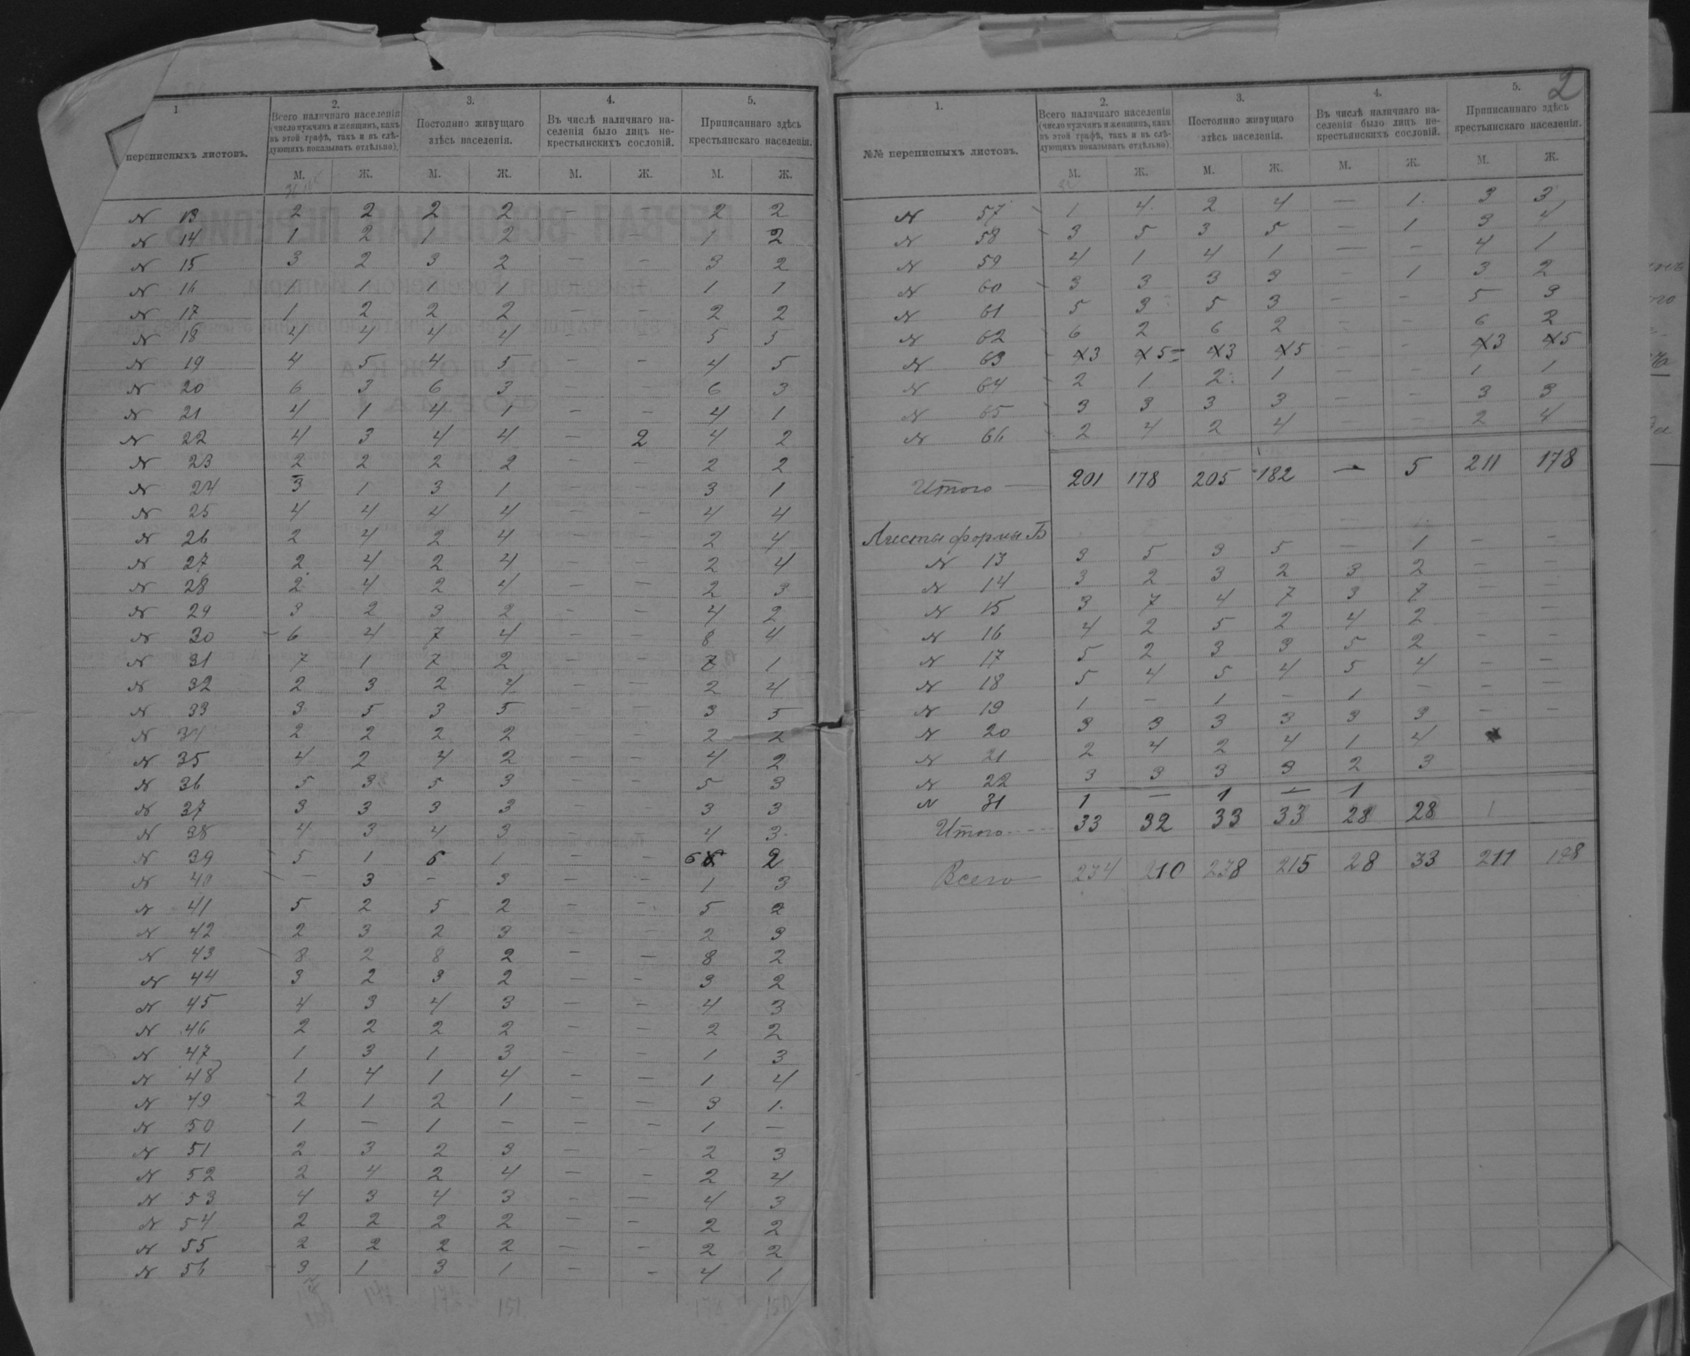 1
переписныхъ листовъ.
2.
Всего наличнаго населенія
(число мужчинъ и женщинъ, какъ
въ этой графѣ, такъ и въ слѣ-
дующихъ показывать отдѣльно).
3.
Постоянно живущаго
здѣсь населенія.
4.
Въ числѣ наличнаго на-
селенія было лицъ не-
крестьянскихъ сословій.
5.
Приписаннаго здѣсь
крестьянскаго населенія.
М. Ж. М. Ж. М. Ж. М. Ж.
N 13 2 2 2 2 — — 2 2
N 14 1 2 1 2 — — 1 2
N 15 3 2 3 2 — — 3 2
N 16 1 1 1 1 — — 1 1
N 17 1 2 2 2 — — 2 2
N 18 4 4 4 4 — — 5 5
N 19 4 5 4 5 — — 4 5
N 20 6 3 6 3 — — 6 3
N 21 4 1 4 1 — — 4 1
N 22 4 3 4 4 — 2 4 2
N 23 2 2 2 2 — — 2 2
N 24 3 1 3 1 — — 3 1
N 25 4 4 4 4 — — 4 4
N 26 2 4 2 4 — — 2 4
N 27 2 4 2 4 — — 2 4
N 28 2 4 2 4 — — 2 3
N 29 3 2 3 2 — — 4 2
N 30 6 4 7 4 — — 8 4
N 31 7 1 7 2 — — 8 1
N 32 2 3 2 4 — — 2 4
N 33 3 5 3 5 — — 3 5
N 34 2 2 2 2 — — 2 2
N 35 4 2 4 2 — — 4 2
N 36 5 3 5 3 — — 5 3
N 37 3 3 3 3 — — 3 3
N 38 4 3 4 3 — — 4 3
N 39 5 1 6 1 — — 6 2
N 40 — 3 — 3 — — 1 3
N 41 5 2 5 2 — — 5 2
N 42 2 3 2 3 — — 2 3
N 43 8 2 8 2 — — 8 2
N 44 3 2 3 2 — — 3 2
N 45 4 3 4 3 — — 4 3
N 46 2 2 2 2 — — 2 2
N 47 1 3 1 3 — — 1 3
N 48 1 4 1 4 — — 1 4
N 49 2 1 2 1 — — 3 1
N 50 1 — 1 — — — 1 —
N 51 2 3 2 3 — — 2 3
N 52 2 4 2 4 — — 2 4
N 53 4 3 4 3 — — 4 3
N 54 2 2 2 2 — — 2 2
N 55 2 2 2 2 — — 2 2
N 56 3 1 3 1 — — 4 1
2
1.
№№ переписныхъ листовъ.
2.
Всего наличнаго населенія
(число мужчинъ и женщинъ, какъ
въ этой графѣ, такъ и въ слѣ-
дующихъ показывать отдѣльно).
3.
Постоянно живущаго
здѣсь населенія.
4.
Въ числѣ наличнаго на-
селенія было лицъ не-
крестьянскихъ сословій.
5.
Приписаннаго здѣсь
крестьянскаго населенія.
М. Ж. М. Ж. М. Ж. М. Ж.
N 57 1 4 2 4 — 1 3 3
N 58 3 5 3 5 — 1 3 4
N 59 4 1 4 1 — — 4 1
N 60 3 3 3 3 — 1 3 2
N 61 5 3 5 3 — — 5 3
N 62 6 2 6 2 — — 6 2
N 63 3 5 3 5 — — 3 5
N 64 2 1 2 1 — — 1 1
N 65 3 3 3 3 — — 3 3
N 66 2 4 2 4 — — 2 4
Итого 201 178 205 182 — 5 211 178
Листы формы Б
N 13 3 5 3 5 — 1 — —
N 14 3 2 3 2 3 2 — —
N 15 3 7 4 7 3 7 — —
N 16 4 2 5 2 4 2
N 17 5 2 3 3 5 2 — —
N 18 5 4 5 4 5 4 — —
N 19 1 — 1 — 1 — — —
N 20 3 3 3 3 3 3 — —
N 21 2 4 2 4 1 4
N 22 3 3 3 3 2 3
N 31 1 — 1 — 1
Итого 33 32 33 33 28 28
Всего 234 210 238 215 28 33 211